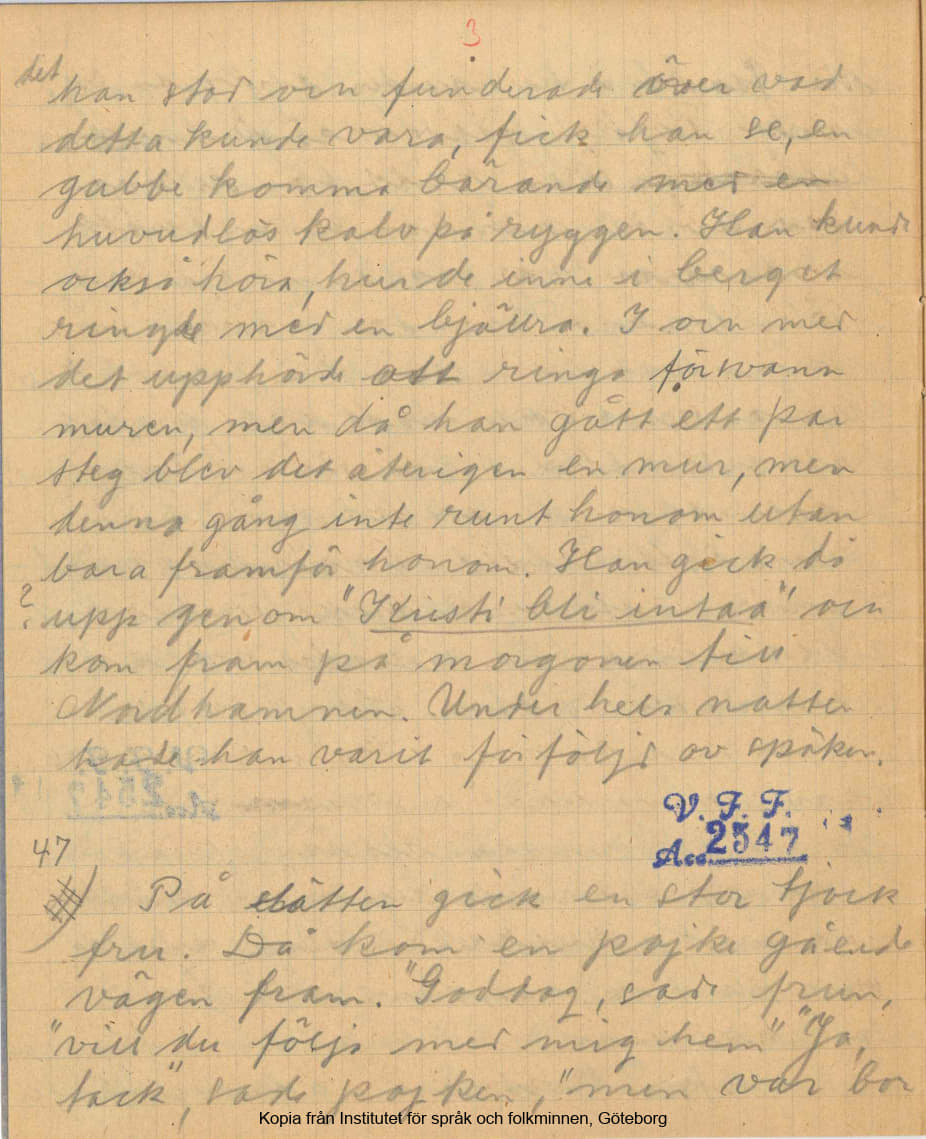 3
det han stod och funderade över vad
detta kunde vara, fick han se, en
gubbe komma bärande med en
huvudlös kalv på ryggen. Han kunde
också höra, hur de inne i berget
ringde med en bjällra. I och med
det upphörde att ringa försvann
muren, men då han gått ett par
steg blev det återigen en mur, men
denna gång inte runt honom utan
bara framför honom. Han gick då
? upp genom "Kristi bli intaa" och
kom fram på morgonen till
Nordhamnen. Under hela natten
hade han varit förföljd av spöken.
V. F. F.
Acc. 2547
47
På slätten gick en stor tjock
fru. Då kom en pojke gående
vägen fram. "Goddag, sade frun,
"vill du följa med mig hem" "Ja,
tack", sade pojken, "men var bor
Kopia från Institutet för språk och folkminnen, Göteborg